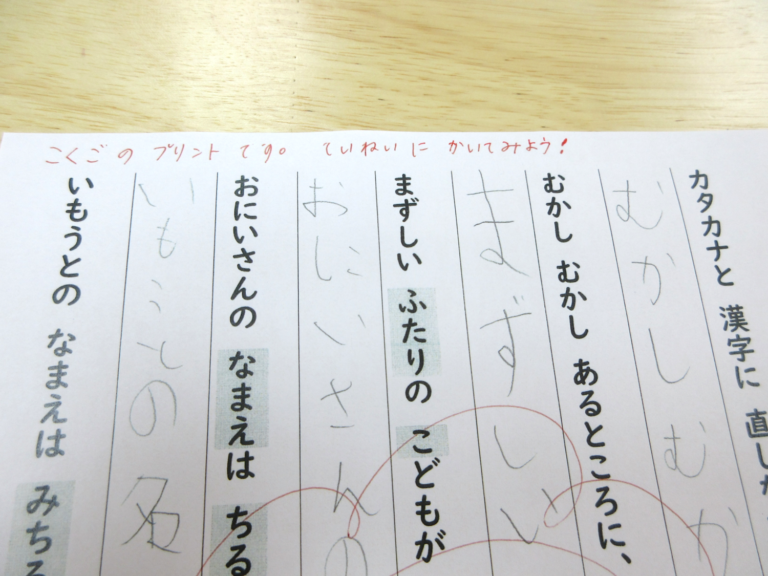 こくごの プリント です。 ていねいに かいてみよう!
カタカナと 漢字に 直し
むかし むかし あるところに、
むかしむか
まずしい ふたりの こどもが
まずしい
おにいさんの なまえは ちる
おにいさんの
いもうとの なまえは みちる
いもうとの名